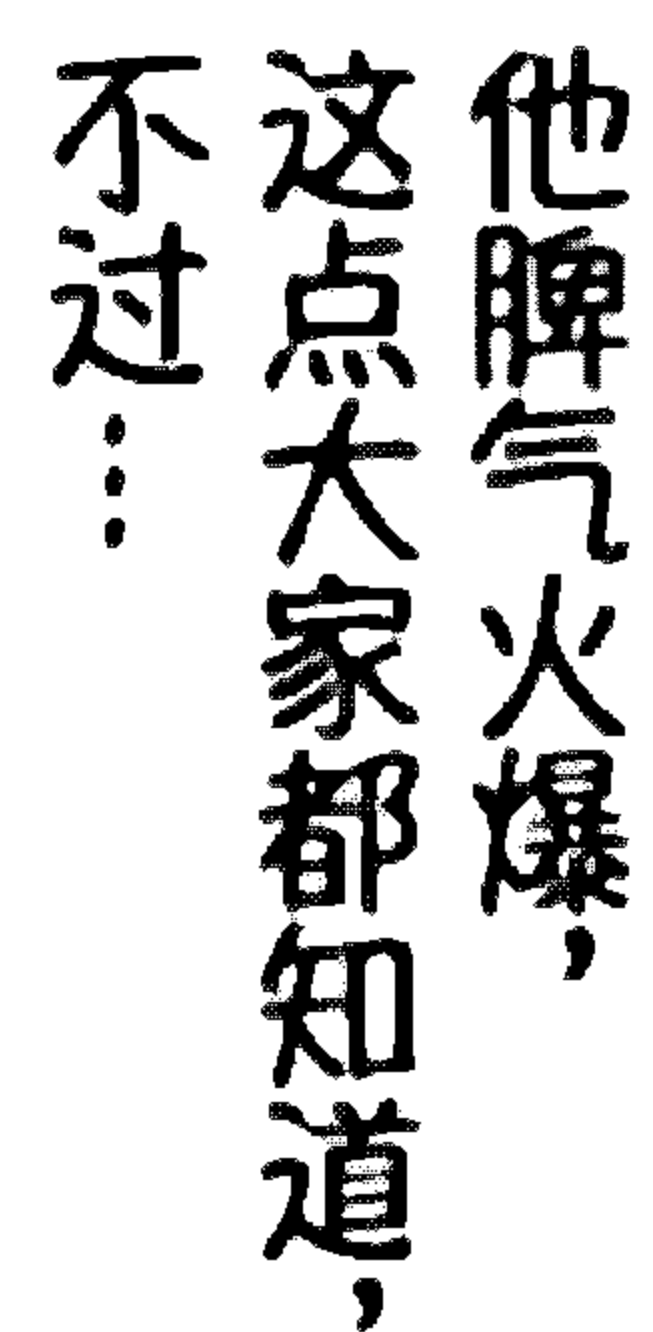 他脾气火爆，
这点大家都知道，
不过…